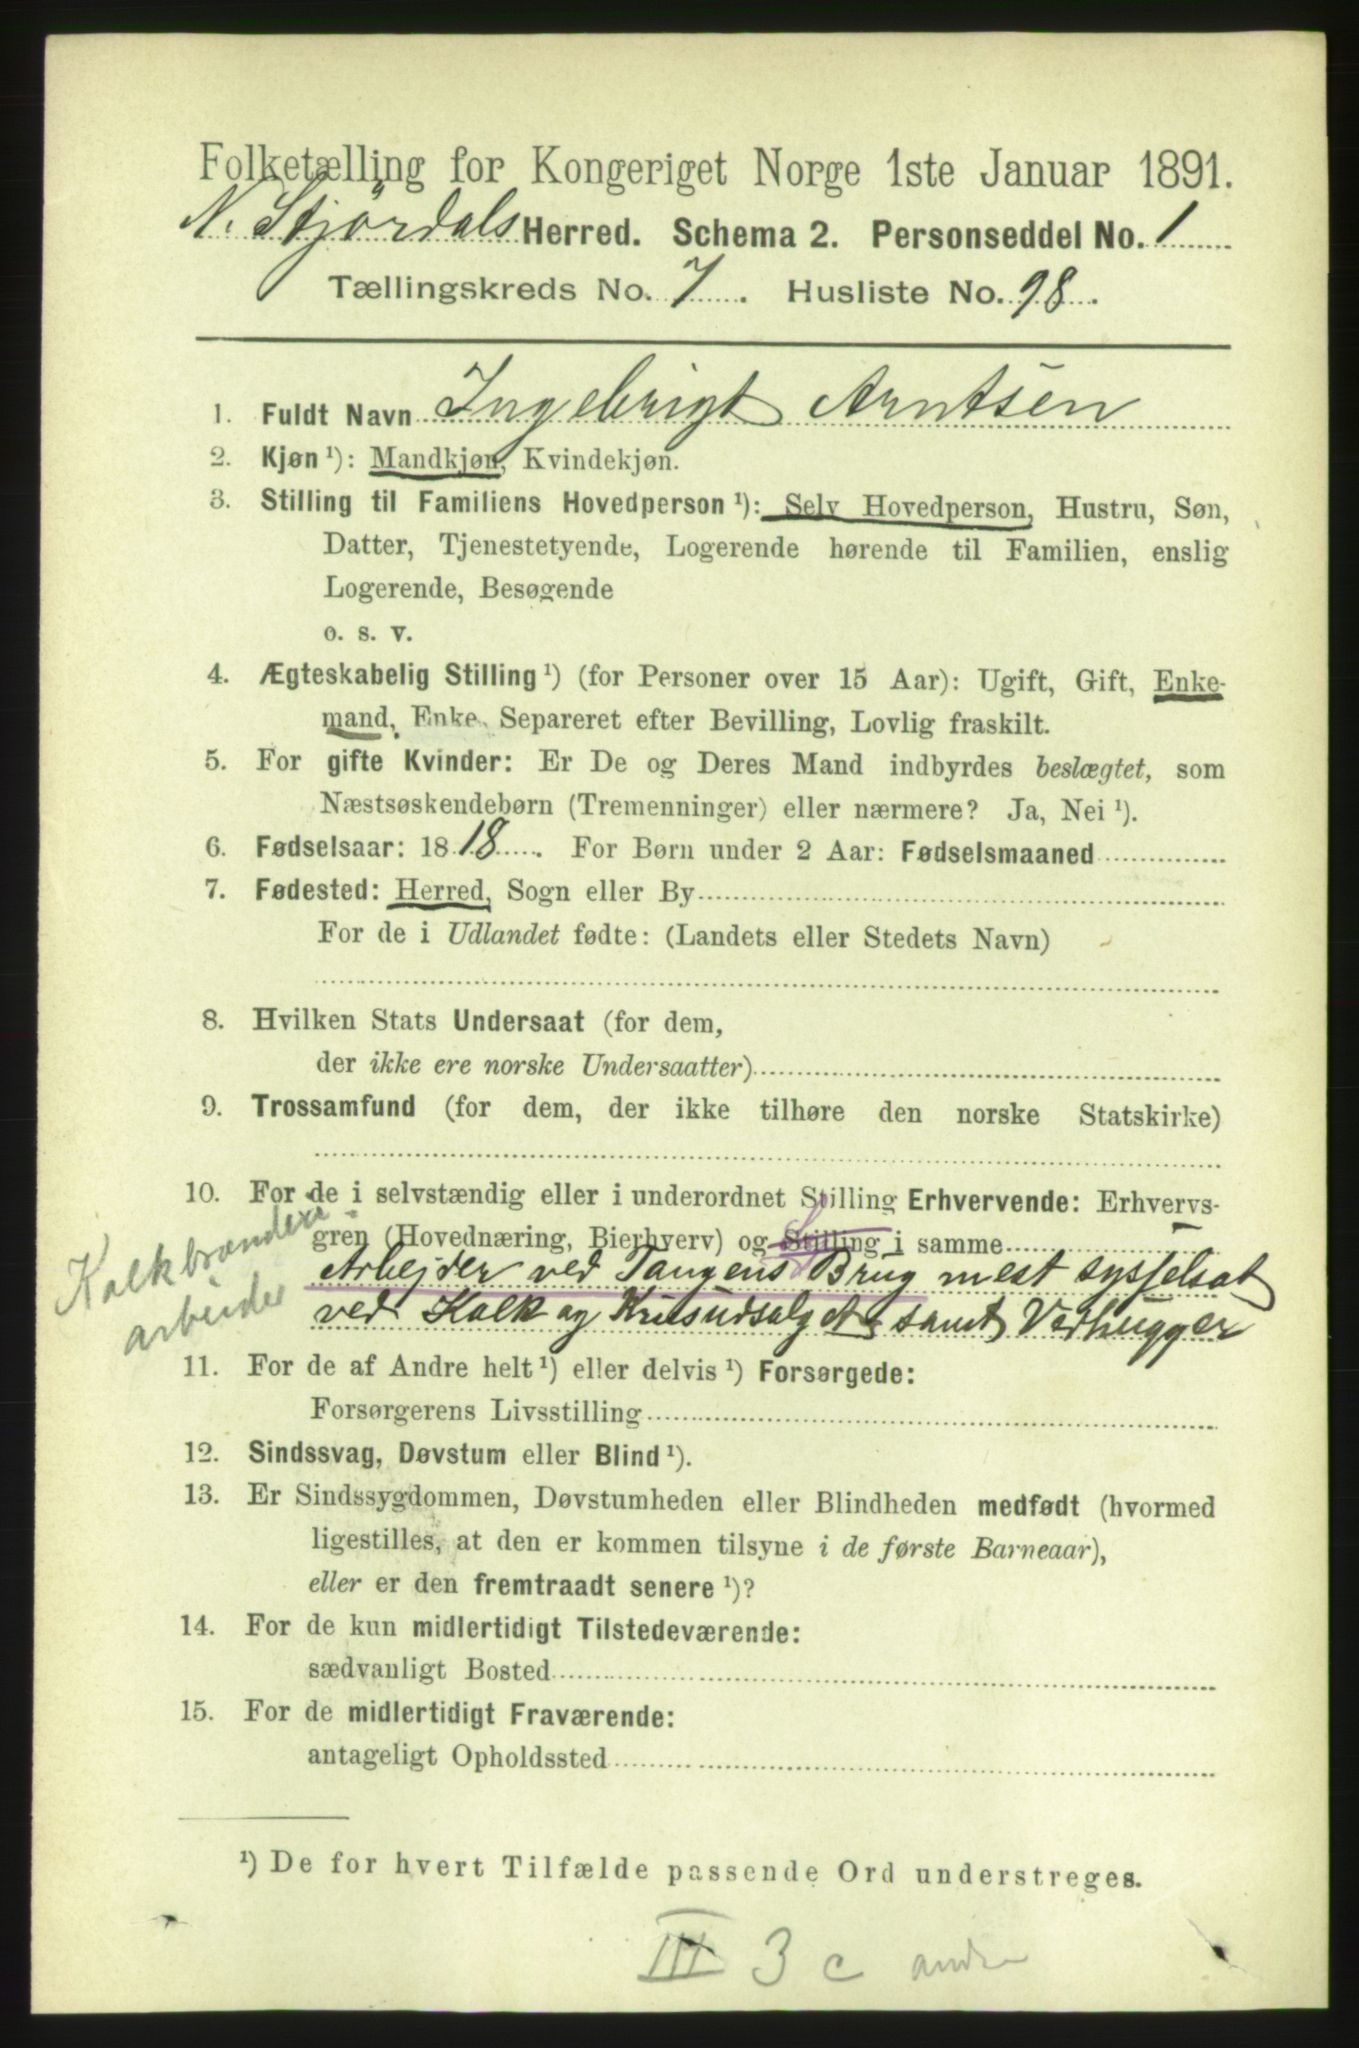 Folketælling for Kongeriget Norge 1ste Januar 1891.
N. Stjørdals Herred. Schema 2. Personseddel No. 1
Tællingskreds No. 7. Husliste No. 98.
1. Fuldt Navn Ingebrigt Arntsen
2. Kjøn ¹): Mandkjøn, Kvindekjøn.
3. Stilling til Familiens Hovedperson ¹): Selv Hovedperson, Hustru, Søn,
Datter, Tjenestetyende, Logerende hørende til Familien, enslig
Logerende, Besøgende
o. s. v.
4. Ægteskabelig Stilling ¹) (for Personer over 15 Aar): Ugift, Gift, Enke-
mand, Enke, Separeret efter Bevilling, Lovlig fraskilt.
5. For gifte Kvinder: Er De og Deres Mand indbyrdes beslægtet, som
Næstsøskendebørn (Tremenninger) eller nærmere? Ja, Nei ¹).
6. Fødselsaar: 1818. For Børn under 2 Aar: Fødselsmaaned
7. Fødested: Herred, Sogn eller By
For de i Udlandet fødte: (Landets eller Stedets Navn)
8. Hvilken Stats Undersaat (for dem,
der ikke ere norske Undersaatter)
9. Trossamfund (for dem, der ikke tilhøre den norske Statskirke)
10. For de i selvstændig eller i underordnet Stilling Erhvervende: Erhvervs-
gren (Hovednæring, Bierhverv) og Stilling i samme
Kalkbrænderi
arbeider
Arbejder ved Tangens Brug mest sysselsat
ved Kalk og samt Vedhugger
11. For de af Andre helt ¹) eller delvis ¹) Forsørgede:
Forsørgerens Livsstilling
12. Sindssvag, Døvstum eller Blind ¹).
13. Er Sindssygdommen, Døvstumheden eller Blindheden medfødt (hvormed
ligestilles, at den er kommen tilsyne i de første Barneaar),
eller er den fremtraadt senere ¹)?
14. For de kun midlertidigt Tilstedeværende:
sædvanligt Bosted
15. For de midlertidigt Fraværende:
antageligt Opholdssted
¹) De for hvert Tilfælde passende Ord understreges.
III 3 c